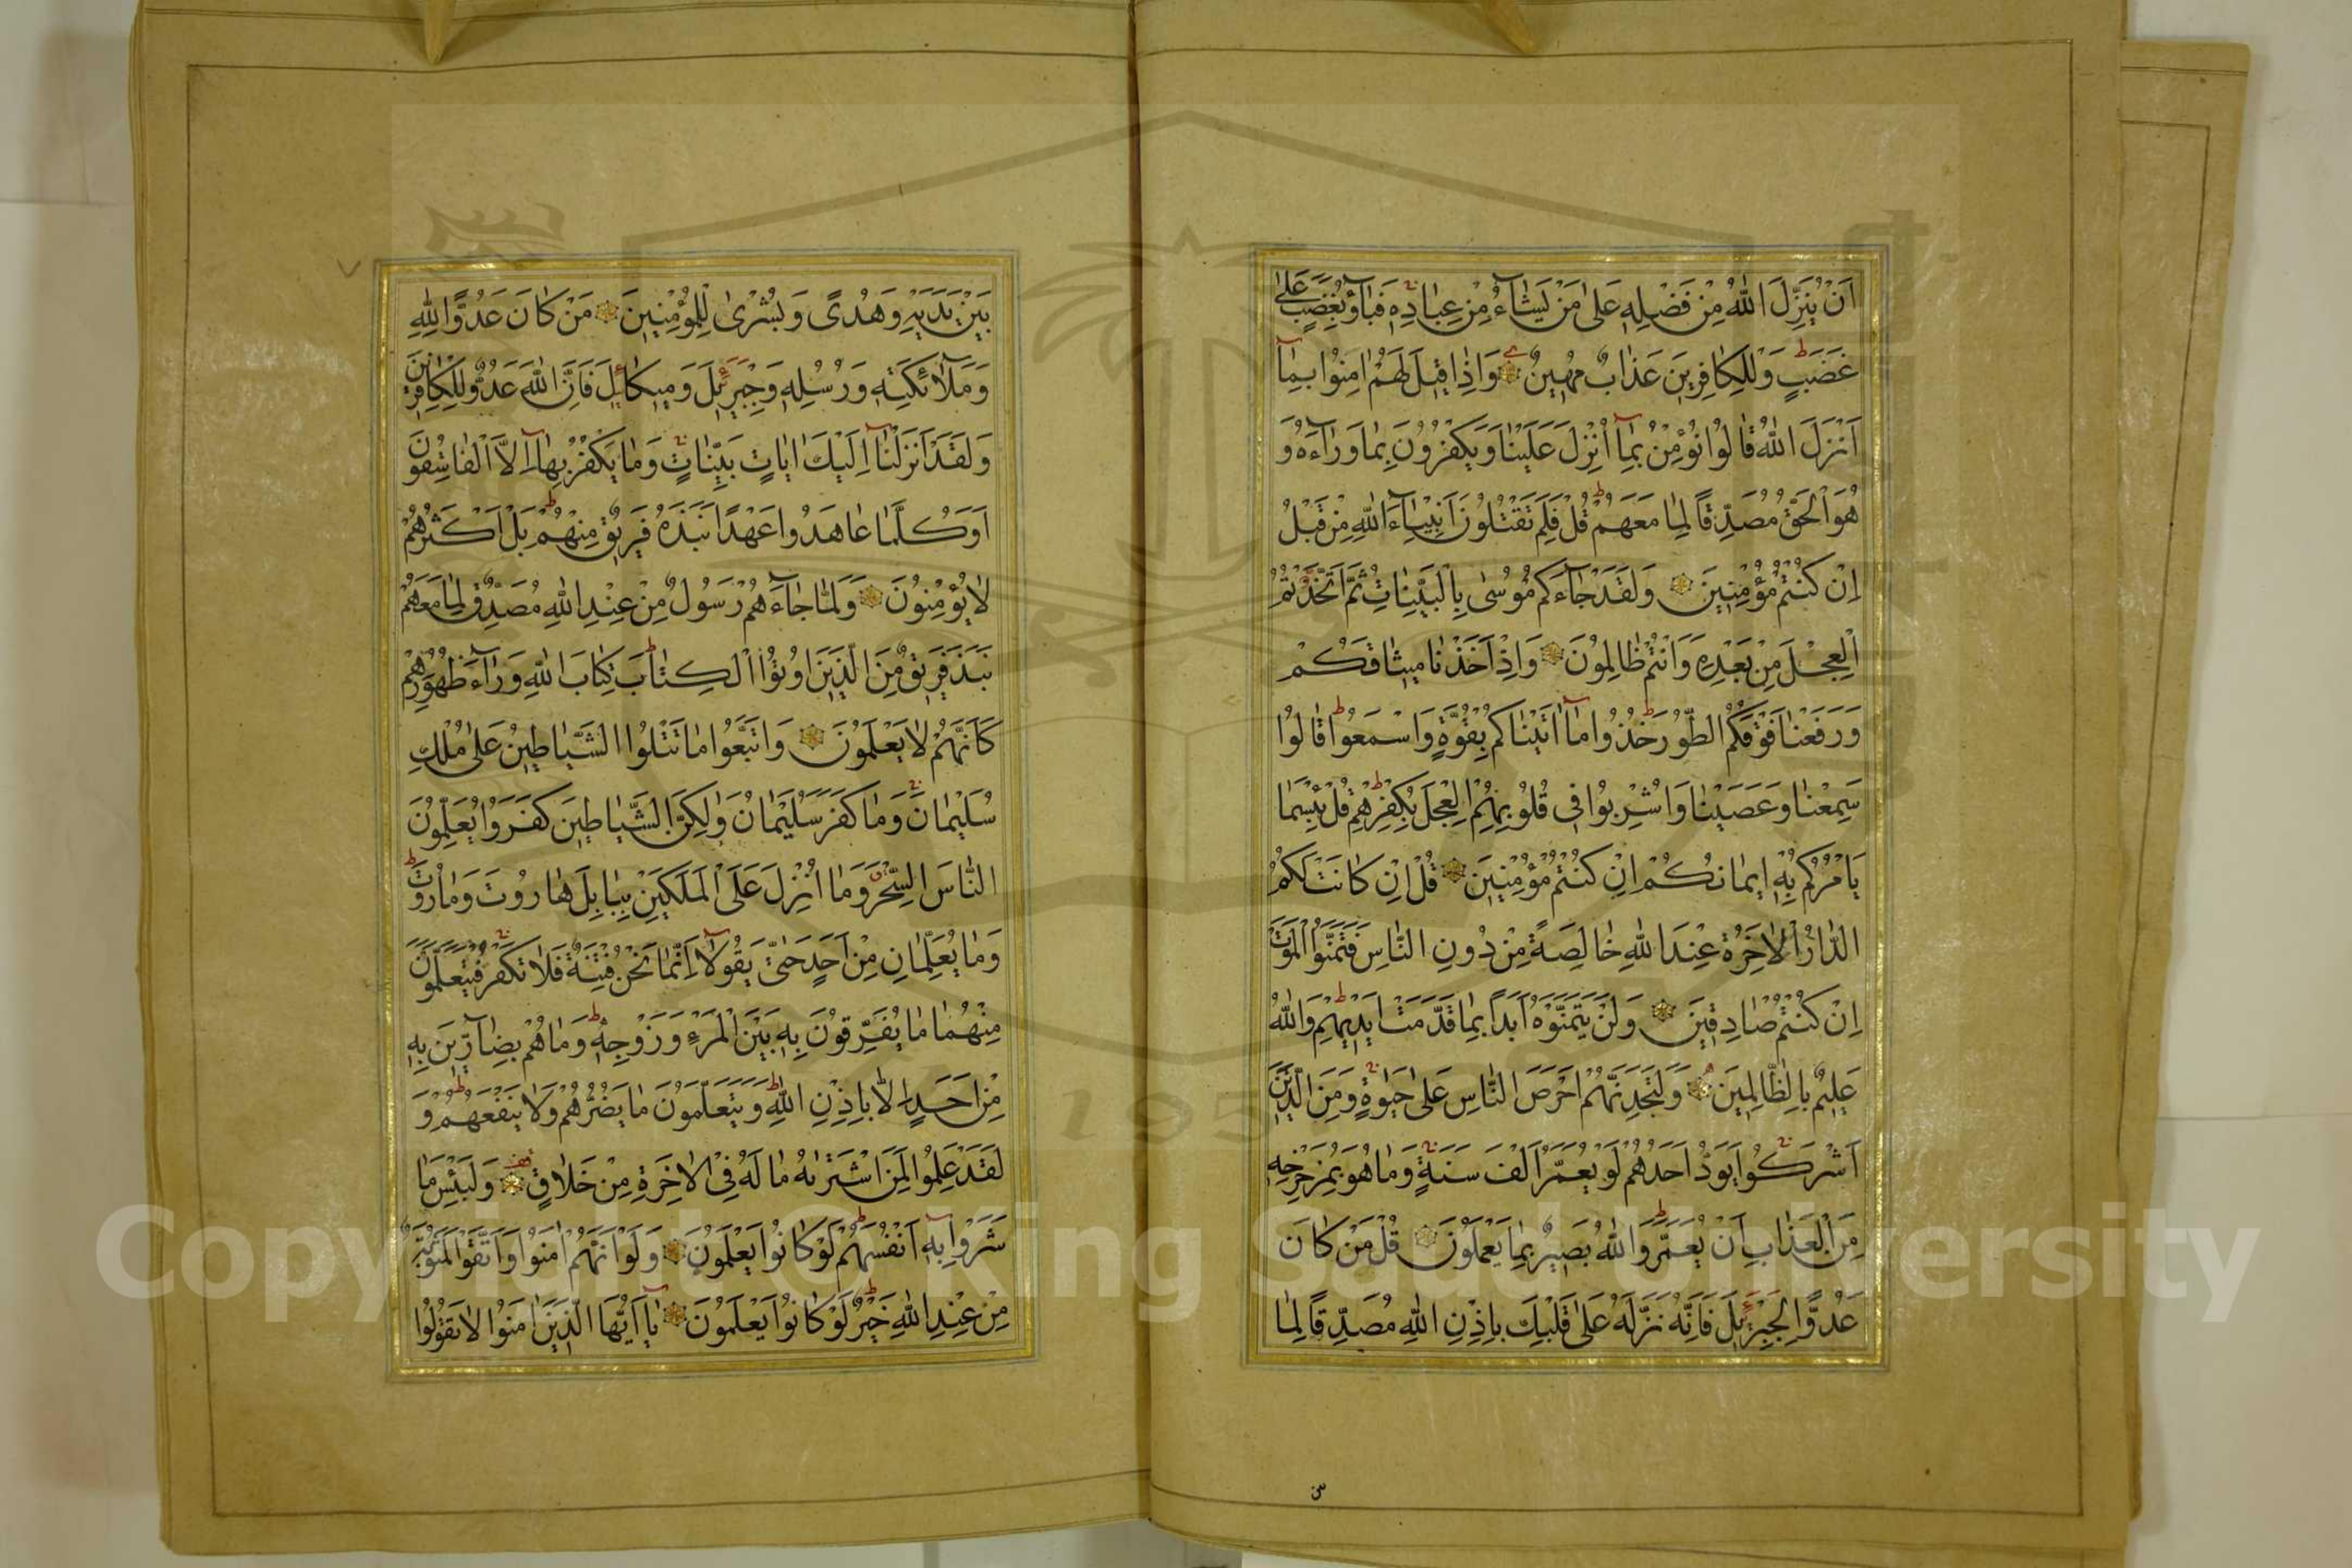 اَنْ يُنَزِّلَ اللّٰهُ مِنْ فَضْلِهٖ عَلٰى مَنْ يَشَٓاءُ مِنْ عِبَادِهٖ فَبَٓاؤُ بِغَضَبٍ عَلٰى
غَضَبٍ وَلِلْكَافِرٖينَ عَذَابٌ مُهٖينٌ وَاِذَا قٖيلَ لَهُمْ اٰمِنُوا بِمَٓا
اَنْزَلَ اللّٰهُ قَالُوا نُؤْمِنُ بِمَٓا اُنْزِلَ عَلَيْنَا وَيَكْفُرُونَ بِمَا وَرَٓاءَهُ وَ
هُوَ الْحَقُّ مُصَدِّقًا لِمَا مَعَهُمْ قُلْ فَلِمَ تَقْتُلُونَ اَنْبِيَٓاءَ اللّٰهِ مِنْ قَبْلُ
اِنْ كُنْتُمْ مُؤْمِنٖينَ وَلَقَدْ جَٓاءَكُمْ مُوسٰى بِالْبَيِّنَاتِ ثُمَّ اتَّخَذْتُمُ
الْعِجْلَ مِنْ بَعْدِهٖ وَاَنْتُمْ ظَالِمُونَ وَاِذْ اَخَذْنَا مٖيثَاقَكُمْ
وَرَفَعْنَا فَوْقَكُمُ الطُّورَ خُذُوا مَٓا اٰتَيْنَاكُمْ بِقُوَّةٍ وَاسْمَعُوا قَالُوا
سَمِعْنَا وَعَصَيْنَا وَاُشْرِبُوا فٖى قُلُوبِهِمُ الْعِجْلَ بِكُفْرِهِمْ قُلْ بِئْسَمَا
يَاْمُرُكُمْ بِهٖ اٖيمَانُكُمْ اِنْ كُنْتُمْ مُؤْمِنٖينَ قُلْ اِنْ كَانَتْ لَكُمُ
الدَّارُ الْاٰخِرَةُ عِنْدَ اللّٰهِ خَالِصَةً مِنْ دُونِ النَّاسِ فَتَمَنَّوُا الْمَوْتَ
اِنْ كُنْتُمْ صَادِقٖينَ وَلَنْ يَتَمَنَّوْهُ اَبَدًا بِمَا قَدَّمَتْ اَيْدٖيهِمْ وَاللّٰهُ
عَلٖيمٌ بِالظَّالِمٖينَ وَلَتَجِدَنَّهُمْ اَحْرَصَ النَّاسِ عَلٰى حَيٰوةٍ وَمِنَ الَّذٖينَ
اَشْرَكُوا يَوَدُّ اَحَدُهُمْ لَوْ يُعَمَّرُ اَلْفَ سَنَةٍ وَمَا هُوَ بِمُزَحْزِحِهٖ
مِنَ الْعَذَابِ اَنْ يُعَمَّرَ وَاللّٰهُ بَصٖيرٌ بِمَا يَعْمَلُونَ قُلْ مَنْ كَانَ
عَدُوًّا لِجِبْرٖيلَ فَاِنَّهُ نَزَّلَهُ عَلٰى قَلْبِكَ بِاِذْنِ اللّٰهِ مُصَدِّقًا لِمَا
بَيْنَ يَدَيْهِ وَهُدًى وَبُشْرٰى لِلْمُؤْمِنٖينَ مَنْ كَانَ عَدُوًّا لِلّٰهِ
وَمَلٰٓائِكَتِهٖ وَرُسُلِهٖ وَجِبْرٖيلَ وَمٖيكَائٖلَ فَاِنَّ اللّٰهَ عَدُوٌّ لِلْكَافِرٖينَ
وَلَقَدْ اَنْزَلْنَٓا اِلَيْكَ اٰيَاتٍ بَيِّنَاتٍ وَمَا يَكْفُرُ بِهَٓا اِلَّا الْفَاسِقُونَ
اَوَكُلَّمَا عَاهَدُوا عَهْدًا نَبَذَهُ فَرٖيقٌ مِنْهُمْ بَلْ اَكْثَرُهُمْ
لَا يُؤْمِنُونَ وَلَمَّا جَٓاءَهُمْ رَسُولٌ مِنْ عِنْدِ اللّٰهِ مُصَدِّقٌ لِمَا مَعَهُمْ
نَبَذَ فَرٖيقٌ مِنَ الَّذٖينَ اُوتُوا الْكِتَابَ كِتَابَ اللّٰهِ وَرَٓاءَ ظُهُورِهِمْ
كَاَنَّهُمْ لَا يَعْلَمُونَ وَاتَّبَعُوا مَا تَتْلُوا الشَّيَاطٖينُ عَلٰى مُلْكِ
سُلَيْمَانَ وَمَا كَفَرَ سُلَيْمَانُ وَلٰكِنَّ الشَّيَاطٖينَ كَفَرُوا يُعَلِّمُونَ
النَّاسَ السِّحْرَ وَمَا اُنْزِلَ عَلَى الْمَلَكَيْنِ بِبَابِلَ هَارُوتَ وَمَارُوتَ
وَمَا يُعَلِّمَانِ مِنْ اَحَدٍ حَتّٰى يَقُولَٓا اِنَّمَا نَحْنُ فِتْنَةٌ فَلَا تَكْفُرْ فَيَتَعَلَّمُونَ
مِنْهُمَا مَا يُفَرِّقُونَ بِهٖ بَيْنَ الْمَرْءِ وَزَوْجِهٖ وَمَا هُمْ بِضَٓارّٖينَ بِهٖ
مِنْ اَحَدٍ اِلَّا بِاِذْنِ اللّٰهِ وَيَتَعَلَّمُونَ مَا يَضُرُّهُمْ وَلَا يَنْفَعُهُمْ وَ
لَقَدْ عَلِمُوا لَمَنِ اشْتَرٰيهُ مَا لَهُ فِى الْاٰخِرَةِ مِنْ خَلَاقٍ وَلَبِئْسَ مَا
شَرَوْا بِهٖٓ اَنْفُسَهُمْ لَوْ كَانُوا يَعْلَمُونَ وَلَوْ اَنَّهُمْ اٰمَنُوا وَاتَّقَوْا لَمَثُوبَةٌ
مِنْ عِنْدِ اللّٰهِ خَيْرٌ لَوْ كَانُوا يَعْلَمُونَ يَٓا اَيُّهَا الَّذٖينَ اٰمَنُوا لَا تَقُولُوا
Copyright © King Saud University